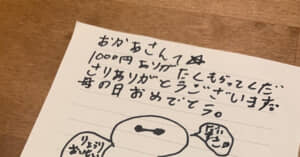 おかあさんへ
1000円ありがたくもらってくだ
さりありがとうございます
母の日おめでとう。
りょうり